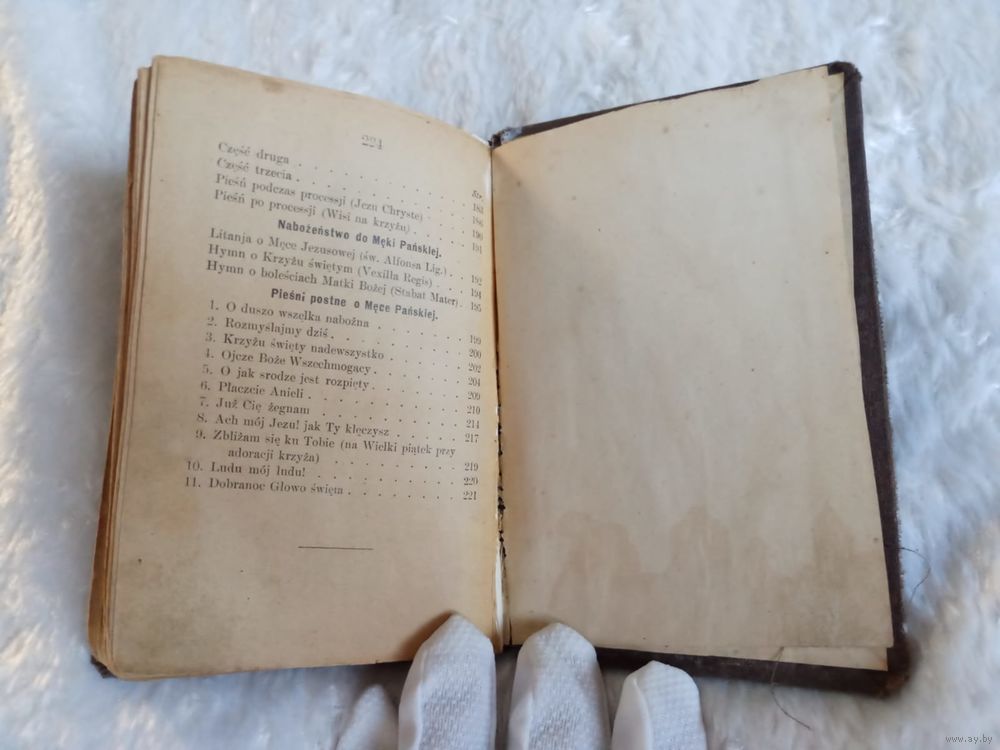 224
Str.
Część druga . . . . . . . . 183
Część trzecia . . . . . . . . 186
Pieśń podczas processji (Jezu Chryste) . . . 190
Pieśń po processji (Wisi na krzyżu) . . . . 191
Nabożeństwo do Męki Pańskiej.
Litanja o Męce Jezusowej (św. Alfonsa Lig.) . . 192
Hymn o Krzyżu świętym (Vexilla Regis) . . . 194
Hymn o boleściach Matki Bożej (Stabat Mater) . 195
Pieśni postne o Męce Pańskiej.
1. O duszo wszelka nabożna . . . . . . 199
2. Rozmyślajmy dziś . . . . . . . . 200
3. Krzyżu święty nadewszystko . . . . . 202
4. Ojcze Boże Wszechmogacy . . . . . 204
5. O jak srodze jest rozpięty . . . . . . 209
6. Płaczcie Anieli . . . . . . . . . 210
7. Już Cię żegnam . . . . . . . . . 214
8. Ach mój Jezu! jak Ty klęczysz . . . . . 217
9. Zbliżam się ku Tobie (na Wielki piątek przy
adoracji krzyża) . . . . . . . . 219
10. Ludu mój ludu! . . . . . . . . . 220
11. Dobranoc Głowo święta . . . . . . . 221
www.ay.by